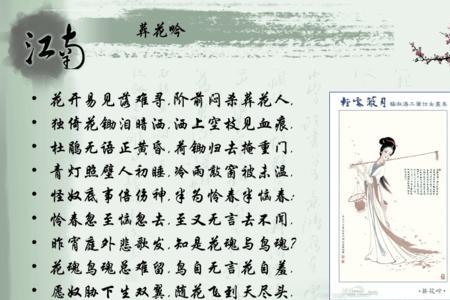 江南
葬花吟
花开易见落难寻,阶前闷杀葬花人,
独倚花锄泪暗洒,洒上空枝见血痕,
杜鹃无语正黄昏,荷锄归去掩重门,
青灯照壁人初睡,冷雨敲窗被未温,
怪奴底事倍伤神,半为怜春半恼春:
怜春忽至恼忽去,至又无言去不闻,
昨宵庭外悲歌发,知是花魂与鸟魂?
花魂鸟魂总难留,鸟自无言花自羞,
愿奴胁下生双翼,随花飞到天尽头,
•葬花吟•